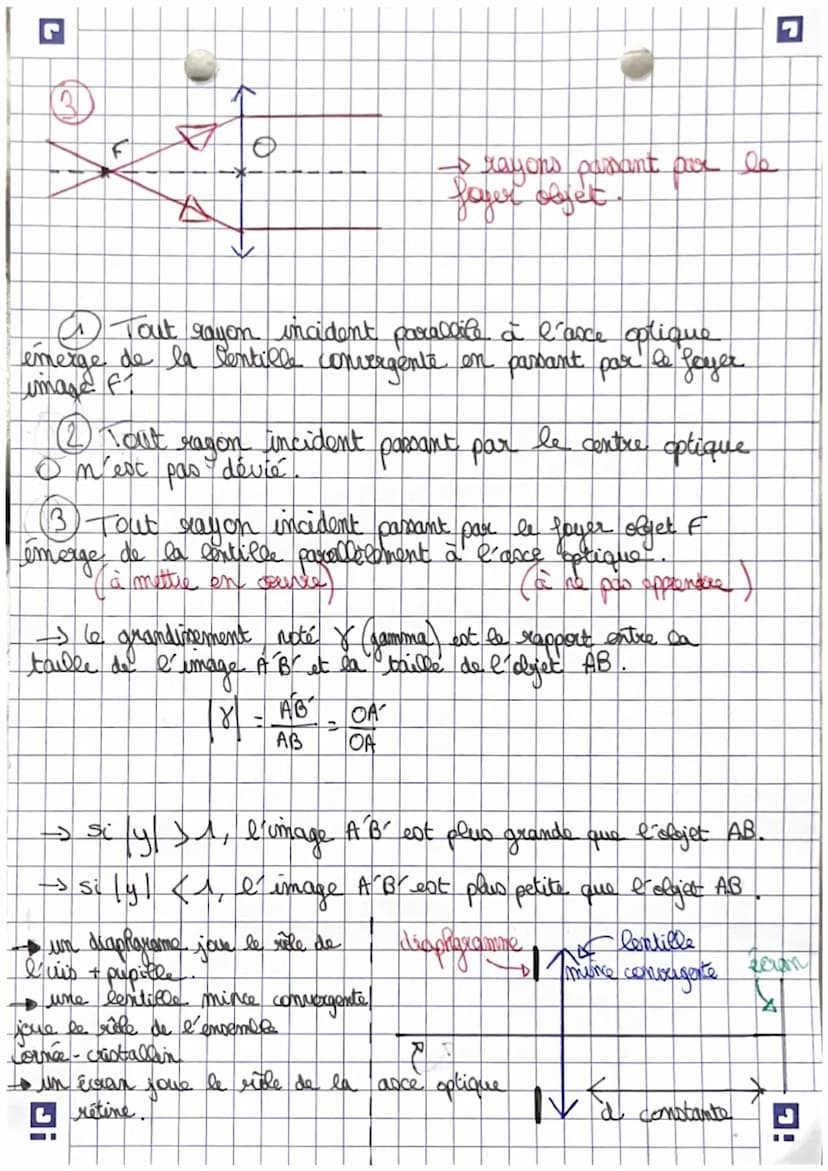 3
F
O
→ rayons passant par le
foyer objet.
① Tout rayon incident parallèle à l'axe optique
émerge de la lentille convergente en passant par le foyer
image F'.
② Tout rayon incident passant par le centre optique
O n'est pas dévié.
③ Tout rayon incident passant par le foyer objet F
émerge de la lentille parallèlement à l'axe optique.
(à mettre en œuvre) (à ne pas apprendre)
→ le grandissement noté γ (gamma) est le rapport entre la
taille de l'image A'B' et la taille de l'objet AB.
|γ| = A'B'/AB = OA'/OA
→ si |γ| > 1, l'image A'B' est plus grande que l'objet AB.
→ si |γ| < 1, l'image A'B' est plus petite que l'objet AB.
→ un diaphragme joue le rôle de
l'uis + pupille.
→ une lentille mince convergente
joue le rôle de l'ensemble
cornée-cristallin
→ un écran joue le rôle de la
rétine.
diaphragme
lentille
mince convergente
écran
axe optique
d constante